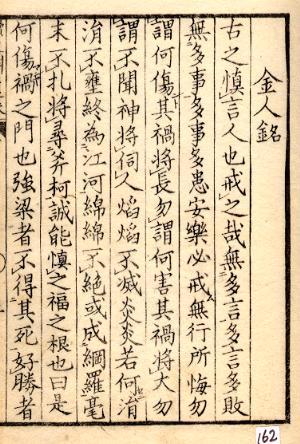 金人銘
古之慎言人也戒之哉無多言多言多敗
無多事多事多患安樂必戒無行所悔勿
謂何傷其禍將長勿謂何害其禍將大勿
謂不聞神將伺人焰焰不滅炎炎若何涓
涓不壅終為江河綿綿不絕或成綱羅毫
末不扎將尋斧柯誠能慎之福之根也曰是
何傷禍之門也強梁者不得其死好勝者
162